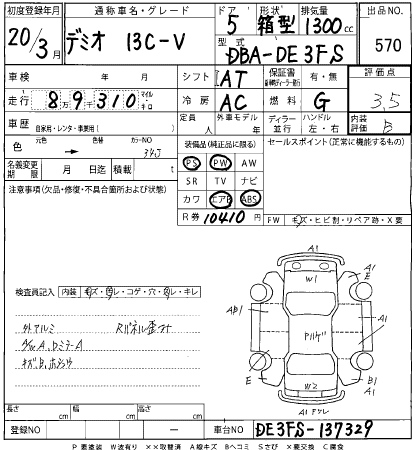 初度登録年月 通称車名・グレード ドア 形状 排気量 出品NO.
20/3月 デミオ 13C-V 5 箱型 1300cc 570
型式 DBA-DE3FS
車検 年 月 シフト AT 保証書 有・無 評価点
走行 8万9千310 マイル・キロ 冷房 AC 燃料 G 3.5
車歴 自家用・レンタ・事業用( ) 定員 人 外車モデル 年 ディーラー 並行 ハンドル 左・右 内装評価 B
色 元色 → 色替 カラーNO 34J
装備品(純正品に限る) セールスポイント(正常に機能するもの)
名義変更期限 月 日 積載 t
PS PW AW
SR TV ナビ
カワ エアB ABS
注意事項(欠品・修復・不具合箇所および状態)
R券 ¥10410円
FW キズ・ヒビ割・リペア跡・X要
検査員記入 内装 キズ・ヨゴレ・コゲ・穴・スレ・キレ
外アルミ
A1 W1 E A1
AP1 A1
E W2 B1 A1
A1
長さ cm 幅 cm 高さ cm
登録NO ー 車台NO DE3FS-137329
P要塗装 W波有り XX取替済 A線キズ Bヘコミ Sさび X要交換 C腐食